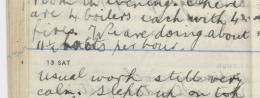 room in evening. There
are 4 boilers each with 42
fires. We are doing about
11½ knots per hour.
13 SAT
usual work still very
calm. Slept up on top